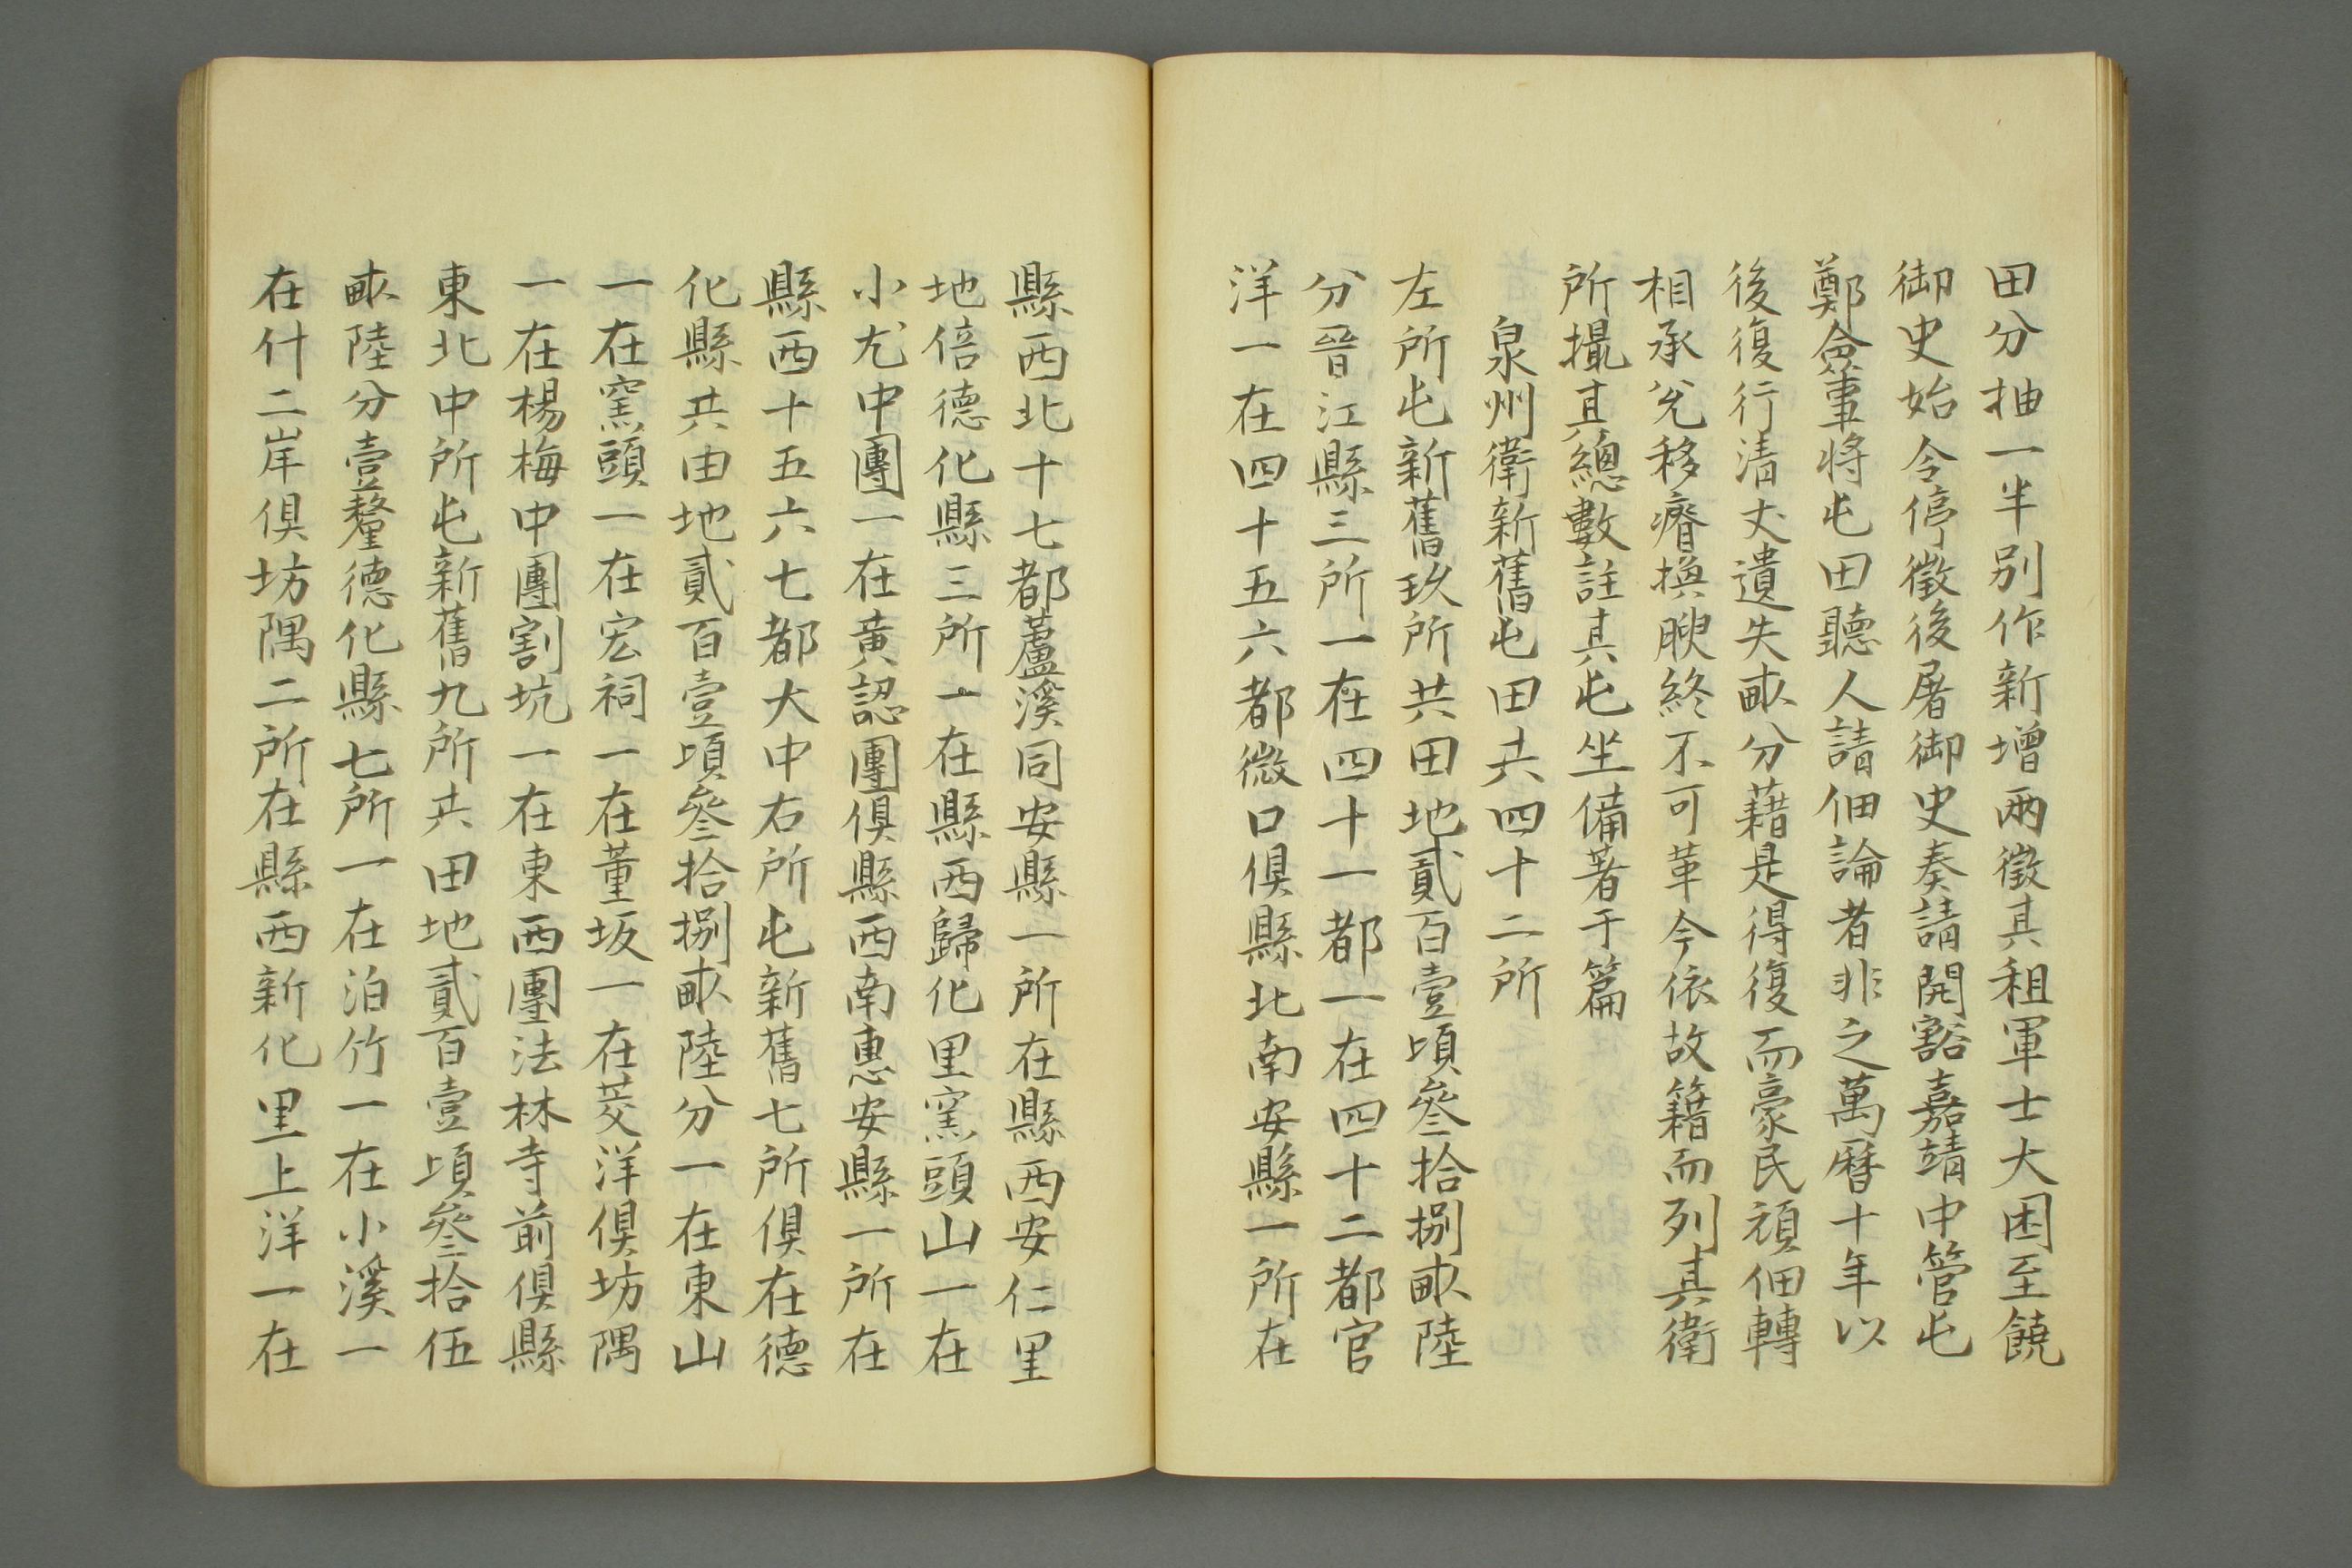 田分抽一半别作新增兩徵其租軍士大困至饒
御史始令停徵後屠御史奏請開豁嘉靖中管屯
鄭僉事將屯田聽人請佃論者非之萬曆十年以
後復行清丈遺失畝分藉是得復而豪民頑佃轉
相承兌移瘠換腴終不可革今依故籍而列其衛
所撮其總數註其屯坐備著于篇
泉州衛新舊屯田共四十二所
左所屯新舊玖所共田地貳百壹頃叄拾捌畝陸
分晉江縣三所一在四十一都一在四十二都官
洋一在四十五六都微口俱縣北南安縣一所在
縣西北十七都蘆溪同安縣一所在縣西安仁里
地倍德化縣三所一在縣西歸化里窯頭山一在
小尤中團一在黃認團俱縣西南惠安縣一所在
縣西十五六七都大中右所屯新舊七所俱在德
化縣共由地貳百壹頃叄拾捌畝陸分一在東山
一在窯頭一在宏祠一在董坂一在茭洋俱坊隅
一在楊梅中團割坑一在東西團法林寺前俱縣
東北中所屯新舊九所共田地貳百壹頃叄拾伍
畝陸分壹釐德化縣七所一在泊竹一在小溪一
在什二岸俱坊隅二所在縣西新化里上洋一在